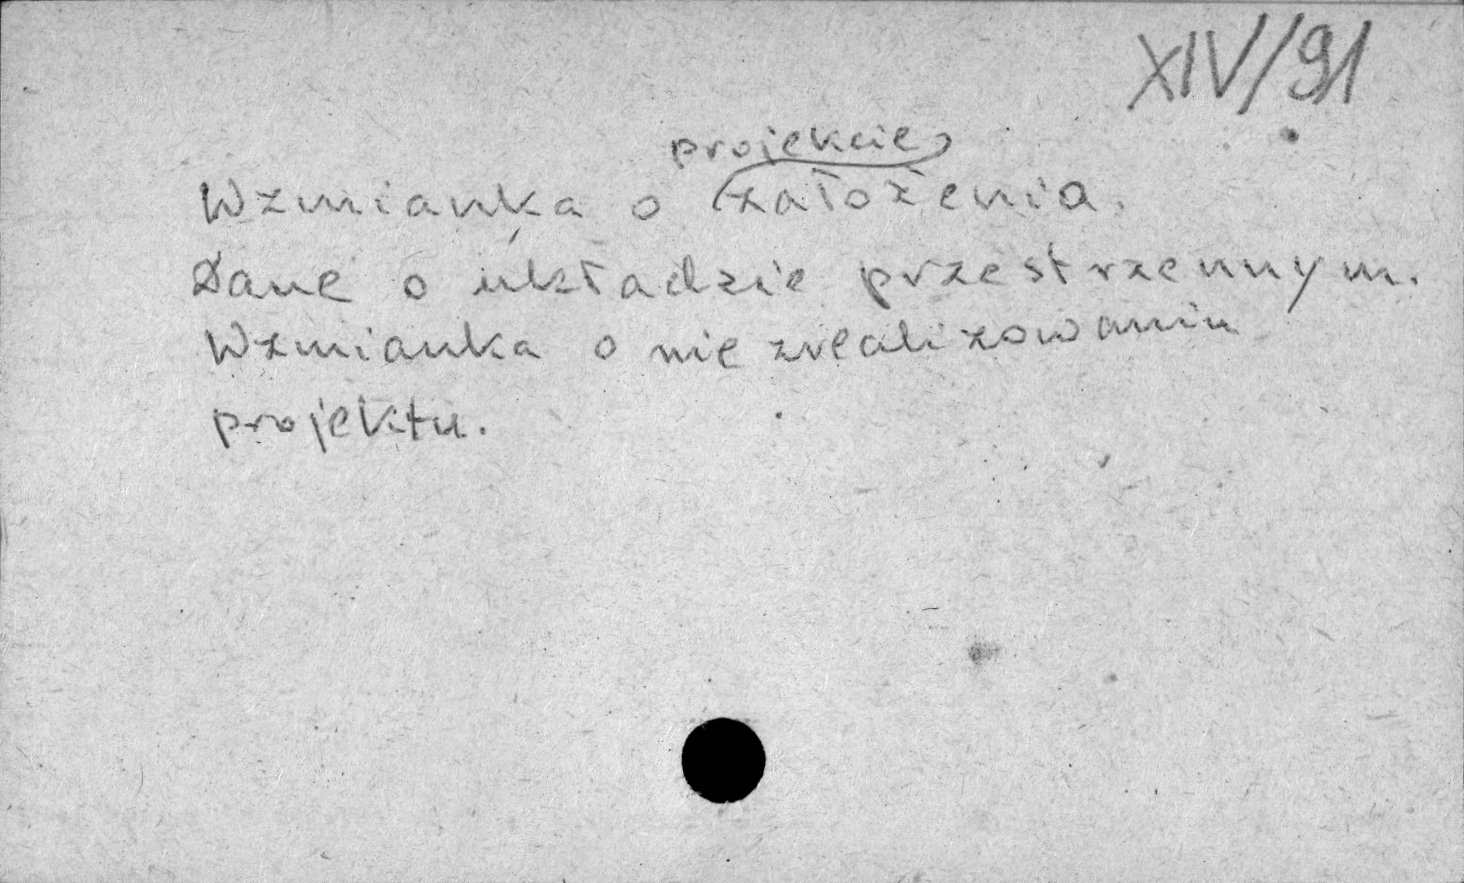 XIV/91
projekcie
Wzmianka o założenia.
Dane o układzie przestrzennym.
Wzmianka o nie zrealizowaniu
projektu.